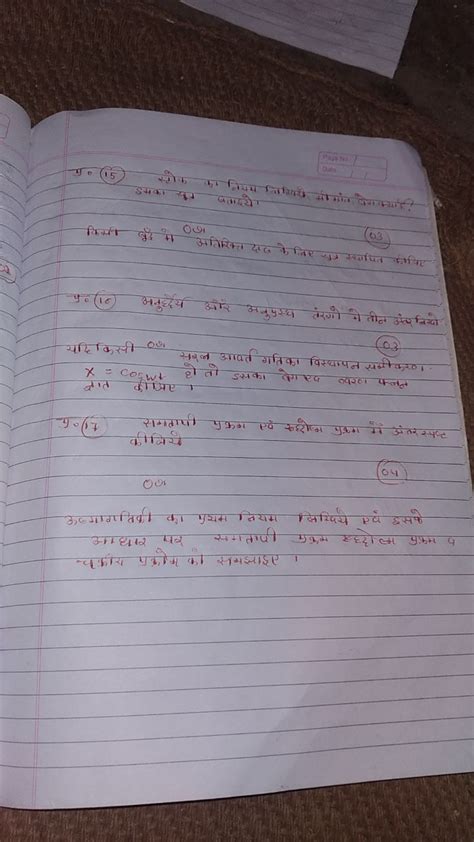 Page No.
Date
प्र० (15) स्टोक का नियम लिखिये, सीमांत वेग क्या है?
इसका सूत्र बताइये।
(03)
OR
किसी बूंद में अतिरिक्त दाब के लिए सूत्र स्थापित कीजिए
प्र० (16) अनुदैर्ध्य और अनुप्रस्थ तरंगों में तीन अंतर लिखो
(03)
OR
यदि किसी सरल आवर्त गति का विस्थापन समीकरण
X = coswt हो तो इसका वेग एवं त्वरण
ज्ञात कीजिए।
प्र० (17) समतापी प्रक्रम एवं रुद्धोष्म प्रक्रम में अंतर स्पष्ट
कीजिये
(04)
OR
ऊष्मागतिकी का प्रथम नियम लिखिये एवं इसके
आधार पर समतापी प्रक्रम रुद्धोष्म प्रक्रम व
चक्रीय प्रक्रम को समझाइए।